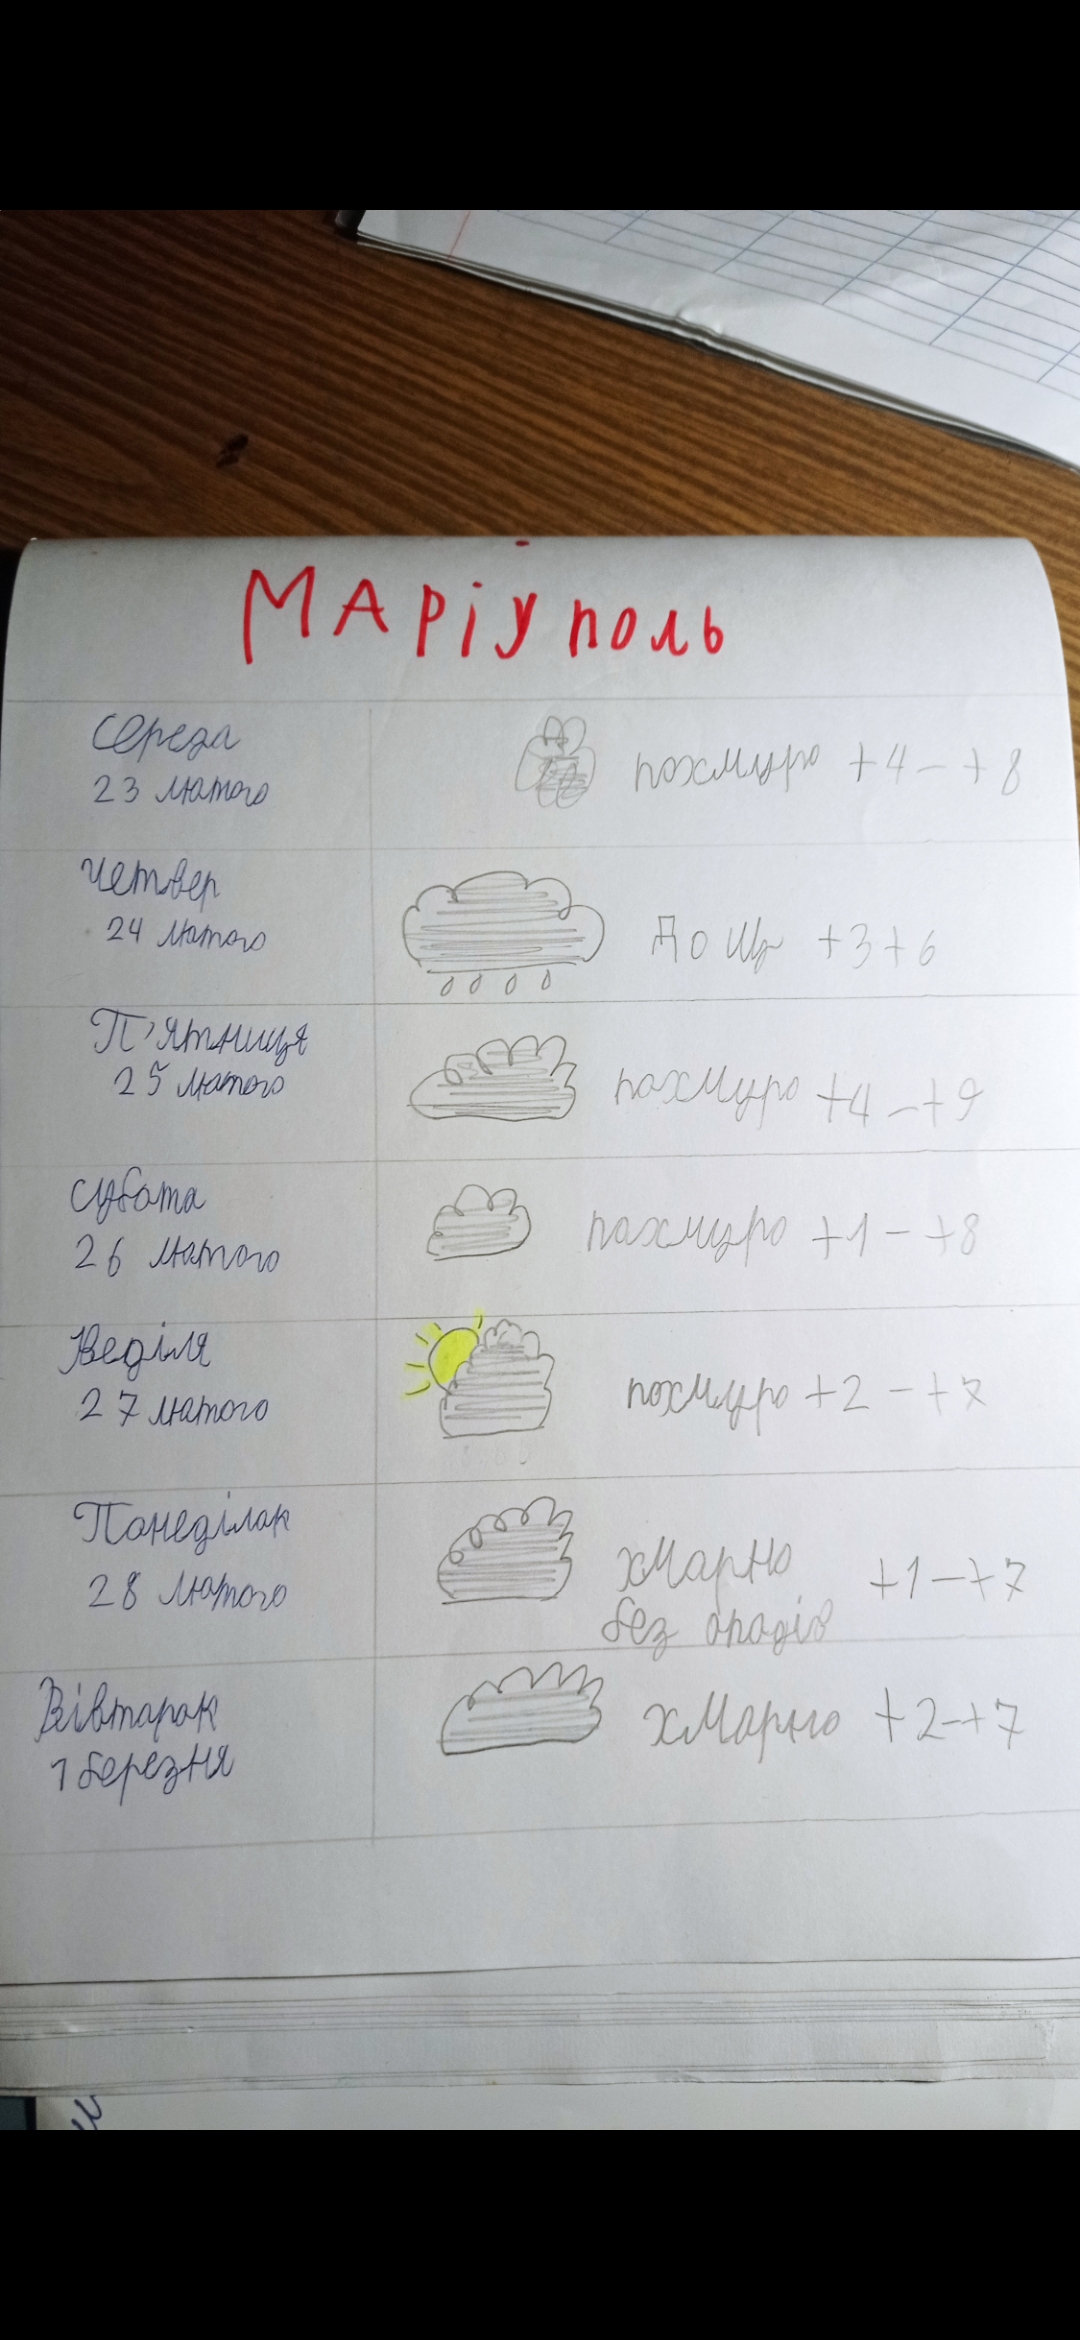 Маріуполь
Середа
23 лютого
похмуро +4 - +8
Четвер
24 лютого
Дощ +3 +6
П'ятниця
25 лютого
похмуро +4 - +9
Субота
26 лютого
похмуро +1 - +8
Неділя
27 лютого
похмуро +2 - +7
Понеділак
28 лютого
хмарно
без опадів
+1 - +7
Вівтарок
1 березня
хмарно +2 - +7